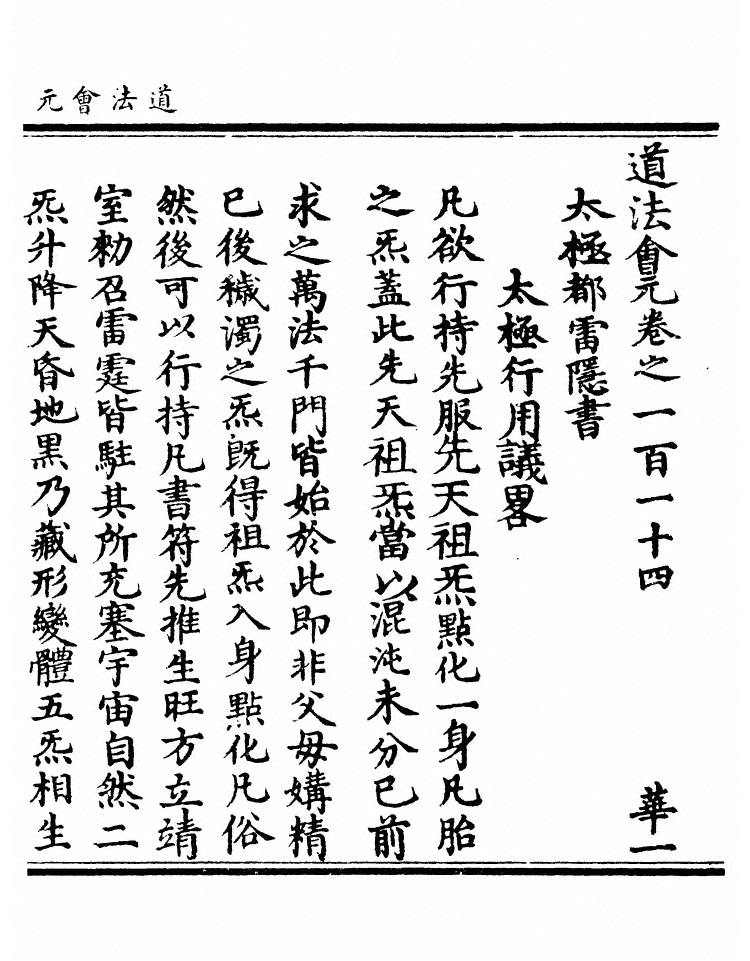 道法會元
道法會元卷之一百一十四 華一
太極都雷隱書
太極行用議畧
凡欲行持先服先天祖炁點化一身凡胎
之炁蓋此先天祖炁當以混沌未分已前
求之萬法千門皆始於此即非父母媾精
已後穢濁之炁既得祖炁入身點化凡俗
然後可以行持凡書符先推生旺方立靖
室勑召雷霆皆駐其所充塞宇宙自然二
炁升降天昏地黑乃藏形變體五炁相生